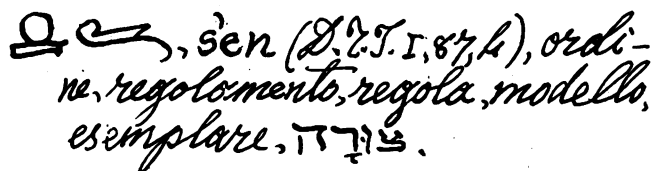 śen I, 87, ordi-
ne, regolamento, regola, modello,
esemplare, צוּרָה.